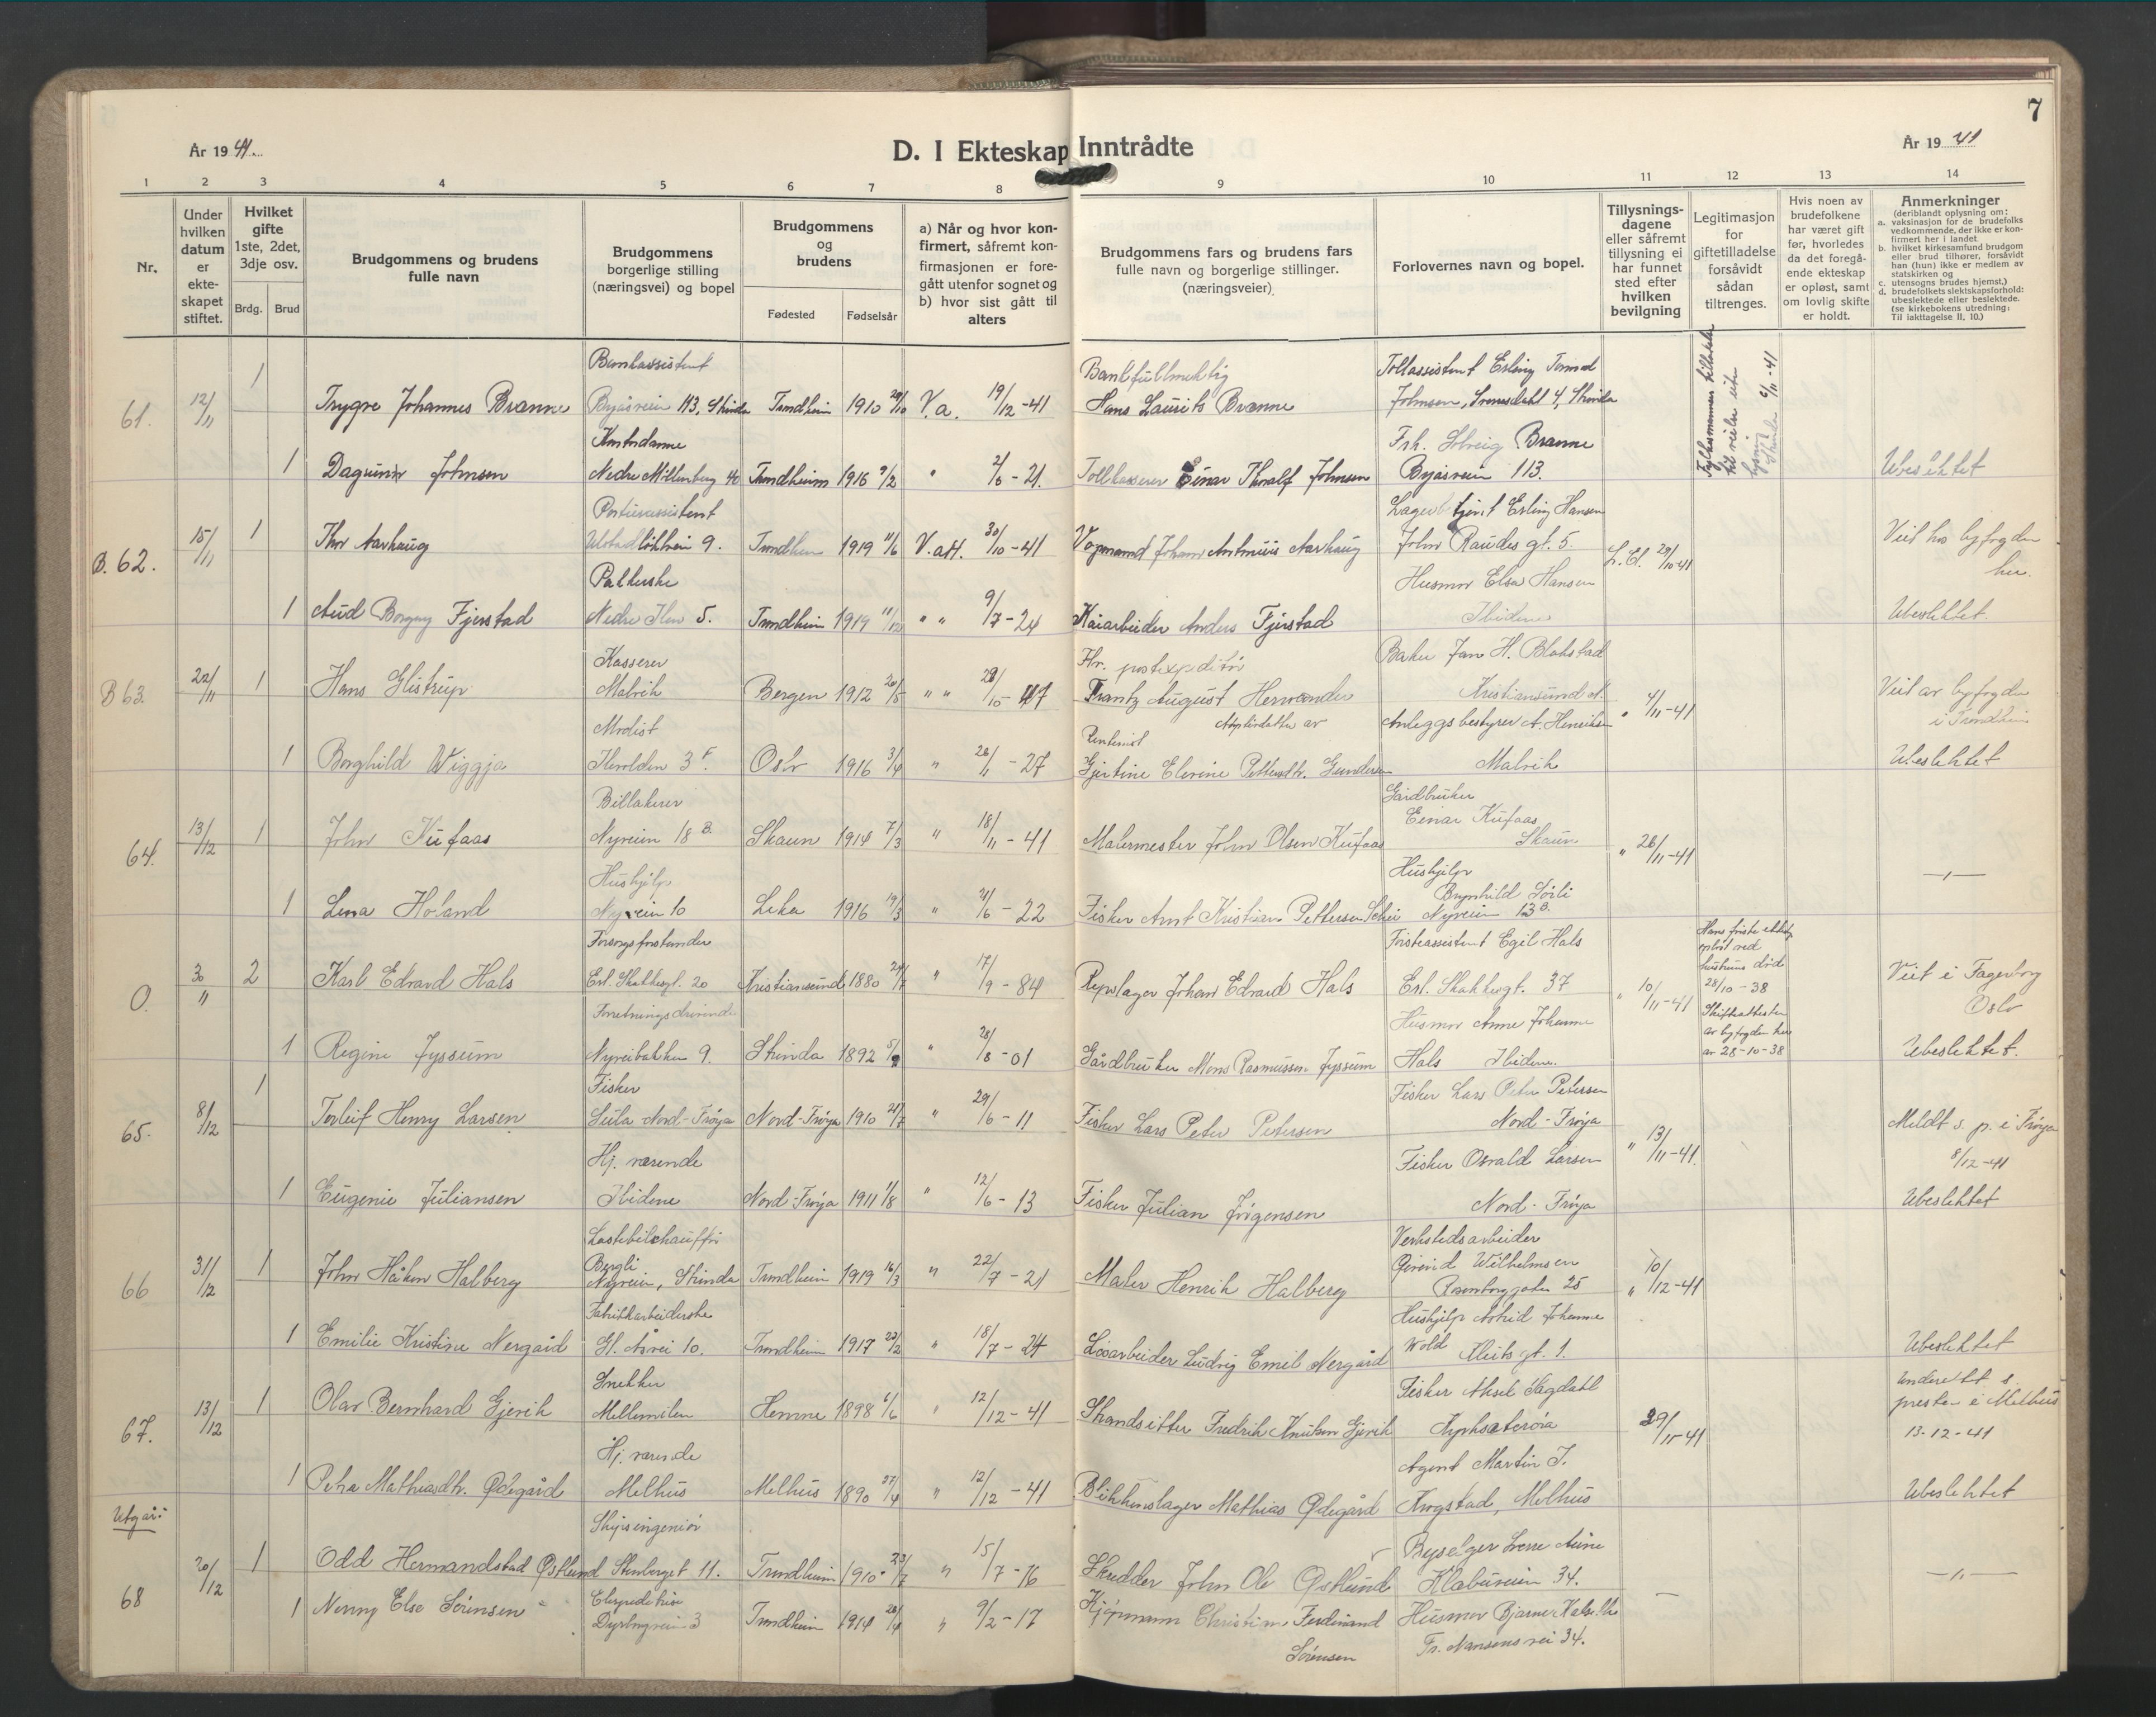 7
År 1941.
D. I Ekteskap Inntrådte
År 1941
1 2 3 4 5 6 7 8 9 10 11 12 13 14
Nr.
Under hvilken datum er ekte-skapet stiftet.
Hvilket gifte 1ste, 2det, 3dje osv.
Brdg. Brud
Brudgommens og brudens fulle navn
Brudgommens borgerlige stilling (næringsvei) og bopel
Brudgommens og brudens
Fødested Fødselsår
a) Når og hvor kon-firmert, såfremt kon-firmasjonen er fore-gått utenfor sognet og
b) hvor sist gått til alters
Brudgommens fars og brudens fars fulle navn og borgerlige stillinger. (næringsveier)
Forlovernes navn og bopel.
Tillysnings-dagene eller såfremt tillysning ei har funnet sted efter hvilken bevilgning
Legitimasjon for giftetilladelse forsåvidt sådan tiltrenges.
Hvis noen av brudefolkene har været gift før, hvorledes da det foregå-ende ekteskap er opløst, samt om lovlig skifte er holdt.
Anmerkninger
(deriblandt oplysning om:
a. vaksinasjon for de brudefolks vedkommende, der ikke er kon-firmert her i landet
b. hvilket kirkesamfund brudgom eller brud tilhører, forsåvidt han (hun) ikke er medlem av statskirken og
c. utensogns brudes hjemst.)
d. brudefolkets slektskapsforhold: ubeslektede eller beslektede.
(se kirkebokens utredning: Til iakttagelse II, 10.)
Bankassistent
Bankfullmektig
Tollassistent Erling
61. 12/11 1 Trygve Johannes Brænne Byåsveien 113, Strinda Trondheim 1910 V.a. 19/12-41 Hans Laurits Brænne Johnsen, 4, Strinda
Kontordame
Frk. Solveig Brænne
1 Dagunn Johnsen Nedre Møllenberg 40 Trondheim 1916 9/2 " 2/6-21. Tollkasserer Einar Thoralf Johnsen Byåsveien 113. Ubeslektet
Portierassistent
Erling Hansen
B.62. 15/11 1 Thor Aarhaug 9. Trondheim 1919 11/6 V. att. 30/10-41 Vognmand Johan Antonius Aarhaug John Raudes gt. 5. L. El. 29/10-41 Viet hos byfogden her.
Husmor Elsa Hansen
1 Aud Borgny Fjerstad Nedre Ilen 5. Trondheim 1919 " " 9/7-24 Kaiarbeider Anders Fjerstad Ibidem Ubeslektet.
Kasserer
Fhv. postexpeditør
Baker Jan H. Blakstad
B63. 22/11 1 Hans Glistrup Malvik Bergen 1912 20/5 " " Frantz August Kristiansund N. " 4/11-41 Viet av byfogden i Trondheim
Modist
Adoptivdatter av
Anleggsbestyrer A. Henriksen
Rentenist
1 Borghild Wiggja Ilevolden 3 F. Oslo 1916 3/4 " -27 Gjertine Elevine Pettersdtr. Gundersen Malvik Ubeslektet
Billakerer
Gårdbruker Einar Kufaas
64. 13/12 1 John Kufaas Nyveien 18 B. Skaun 1914 7/3 " 18/11-41 Malermester John Olsen Kufaas Skaun " 26/11-41
Hushjelp
Hushjelp Brynhild Sørli
1 Lena Holand Nyveien 10 Leka 1916 19/3 " -22 Fisker Arnt Kristian Pettersen Nyveien 13 B. —"—
Forsorgsforstander
Egil Hals
Hans første ektesk. opløst ved hustruens død 28/10-38 Skifteattesten av byfogden her av 28-10-38
O. 30/11 2 Karl Edvard Hals Erl. Skakkesgt. 20 Kristiansund 1880 " 17/9-84 Repslager Johan Edvard Hals Erl. Skakkesgt. 37 " 10/11-41 Viet i Fagerborg Oslo
Forretningsdrivende
Husmor Anne Johanne
1 Regine Jyssum Nyveibakken 9. Strinda 1892 " -01 Gårdbruker Mons Rasmussen Jyssum Hals Ibidem. Ubeslektet.
Fisker
Fisker Lars Peter Petersen
65. 8/12 1 Torleif Henry Larsen Sula Nord-Frøya Nord-Frøya 1910 21/7 " 29/6-11 Fisker Lars Peter Petersen Nord-Frøya " 13/11-41. Meldt s. p. i Frøya 8/12-41
Hj. værende
Fisker Osvald Larsen
1 Eugenie Juliansen Ibidem Nord-Frøya 1911 1/8 " 12/6-13 Fisker Julian Jørgensen Nord-Frøya Ubeslektet
Lastebilchauffør
Verkstedsarbeider
66 31/12 1 John Håkon Halberg Bergli Nyveien, Strinda Trondheim 1919 16/3 " 22/7-21 Maler Henrik Halberg Øivind Wilhelmsen Rosenborggaten 25 " 10/12-41
Fabrikkarbeiderske
Hushjelp Astrid Johanne
1 Emilie Kristine Nergård Gl. Åsvei 10. Trondheim 1917 22/2 " 18/7-24 Løsarbeider Ludvig Emil Nergård Wold gt. 1. Ubeslektet
Snekker
Fisker Aksel Sagdahl
67. 13/12 1 Olav Bernhard Gjevik Mellemila Hemne 1898 6/6 " 12/12-41 Strandsitter Fredrik Knutsen Gjevik Kyrksæterøra 29/11-41 Underrettet s. presten i Melhus 13-12-41
Hj. værende
Agent Martin J.
1 Petra Mathiasdtr. Ødegård Melhus Melhus 1890 27/4 " 12/12-41 Blikkenslager Mathias Ødegård Krogstad, Melhus Ubeslektet
Utgår:
Skipsingeniør
Byselger Sverre Aune
68 20/12 1 Odd Hermandstad Østlund Stenberget 11. Trondheim 1910 23/7 " 15/7-16 Skredder John Ole Østlund Klæbuveien 34. —"—
1 Nenny Else Sørensen Dyrborgveien 3 Trondheim 1914 " 9/2-17 Kjøpmann Christian Ferdinand Sørensen Husmor Fr. Nansens vei 34.